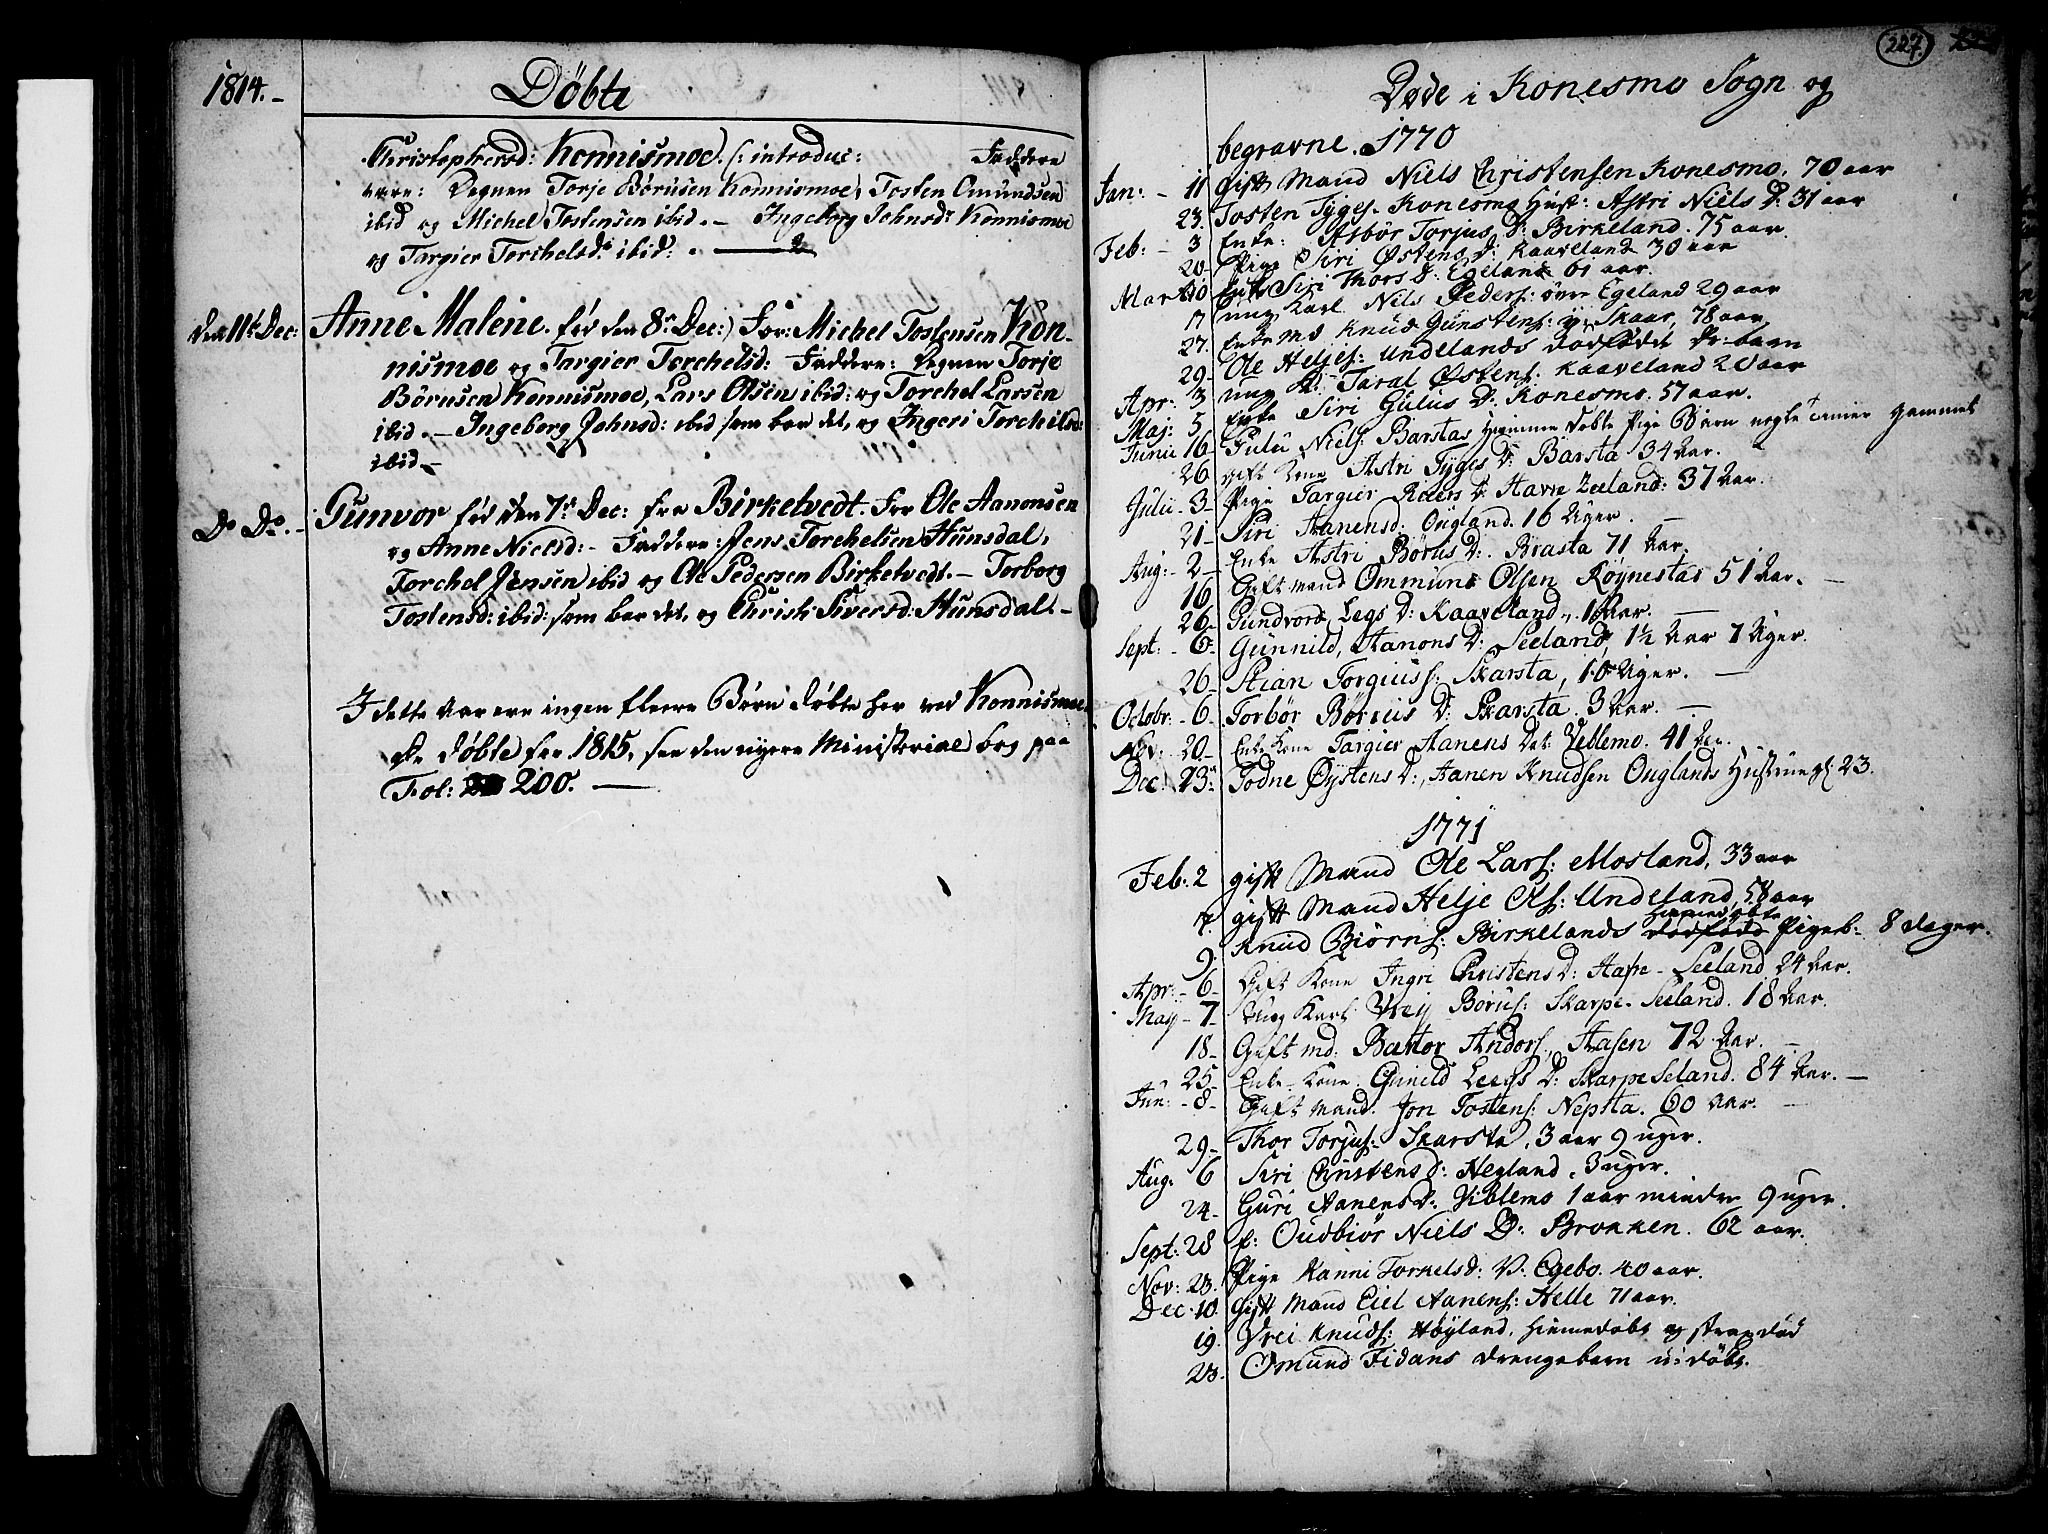 1814.-
Døbte
Christophersd: Konnismoe. /: introduc: Faddere
vare: Degnen Torje Børusen Konnismoe, Tosten Omundsen
ibid og Michel Tostensen ibid. - Ingeborg Johnsdr Konnismoe
og Targier Torchelsd: ibid: .
den 11te Dec: Anne Malene. fød den 8de Dec:) For: Michel Tostensen Kon-
nismoe og Targier Torchelsd: Faddere: Degnen Torje
Børusen Konnismoe, Lars Olsen ibid: og Torchel Larsen
ibid. - Ingeborg Johnsd: ibid som bar det, og Ingeri Torchilsd:
ibid -
Do Do. - Gunvor fød den 7de Dec: fra Birketvedt. For Ole Aanonsen
og Anne Nielsd: - Faddere: Jens Torchelsen Hunsdal,
Torchel Jensen ibid og Ole Pedersen Birketvedt. - Torborg
Tostensd: ibid: som bar det, og Christi Siversd: Hunsdal -
I dette Aar ere ingen fleere Børn døbte her ved Konnismoe.
De døbte for 1815, see den nyere Ministerial bog paa
Fol: 200.
227.
Døde i Konesmo Sogn og
begravne. 1770
Jan: - 11 gift Mand Niels Christensen Konesmo. 70 aar
23. Tosten Tyges. Konesmo Hust: Astri Niels D. 31 aar
Feb: - 3 Enke: Asbør Torjus D: Birkeland. 75 aar.
20- Pige Siri Østens D: Kaaveland 30 aar
Mart. 10 Enke Siri Thors D: Egeland 61 aar.
17 ung Karl Nils Peders: øvre Egeland 29 aar
27. Enke Md Knud Gunstens: Skaar, 78 aar
29- Ole Heljes: Undelands dødfødde Dr: barn
Apr: 3 ung K: Taral Østens: Kaaveland 20 aar
Maj: 5 Enke Siri Gulus D: Konesmo. 57 aar.
Junii 16- Gulu Niels: Barstas hiemme døbte Pige Barn nogle timer gammel
26 gift Kone Astri Tyges D: Barsta 34 Aar.
Julii - 3- Pige Targier Reiers D: Harve Zeeland: 37 Aar.
21- Siri Aanensd: Ougland. 16 Uger.
Aug: - 2- Enke Astri Børus D: Brasta 71 Aar.
16 Gift mand Ommund Olsen Røynestad 51 Aar. -
26- Gundvora Legs D: Kaaveland, 1 Aar. -
Sept: - 6- Gunnild, Aanons D: Seeland, 1½ Aar 7 Uger.
26- Stian Torgius s: Skarsta, 10 Uger. -
Octobr: - 6- Torbør Børius D: Skarsta. 3 Aar. -
Nov: - 20- Enke Kone Targier Aanens Dat: Vellemo. 41 Aar.
Dec: 23- Todne Øystens D:, Aanen Knudsen Ouglands Hustrue gl: 23.
1771
Feb: 2 gift Mand Ole Lars: Mosland, 33 aar
7. gift Mand Helje Ols: Undeland, 58 aar
hiemedøbte
9. Knud Biørns: Birkelands dødfødde Pigeb: 8 dager.
Apr: - 6- Gift Kone Ingri Christens D: Aape - Seeland. 24 Aar.
May - 7- Ung Karl Vrej Børus: Skarpe - Seeland. 18 Aar.
18- Gift md: Bastor Andors, Aasen 72 Aar. -
25- Enke - Kone Gunild Leegs D: Skarpe Seland. 84 Aar. -
Jun: - 8- Gift mand. Jon Tostens: Nepsta. 60 Aar. -
29- Thor Torjus: Skarsta, 3 aar 9 uger.
Aug: 6 Siri Christens D: Høgland, 3 uger.
24- Guri Aanens D: Viblemo 1 aar mindre 9 uger.
Sept: 28 f: Oudbiør Niels D: Brokken. 62 aar.
Nov: 23. Pige Ranni Torkelsd: V. Egebo. 40 aar.
Dec. 10 gift Mand Eiel Aanens: Helle 71 aar.
19. Vrei Knuds: Høyland, hiemedøbt og strax død
23. Omund Fidans drengebarn u: døbt.